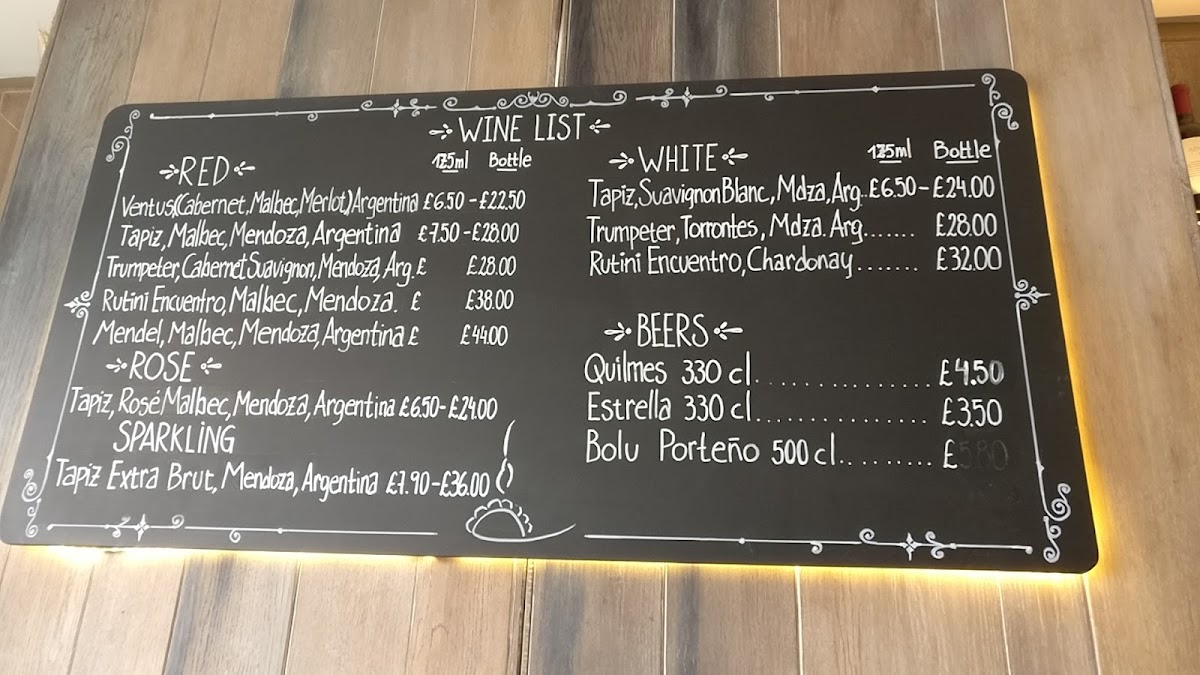 WINE LIST
RED 175ml Bottle
Ventus(Cabernet, Malbec, Merlot) Argentina £6.50 - £22.50
Tapiz, Malbec, Mendoza, Argentina £7.50 - £28.00
Trumpeter, Cabernet Suavignon, Mendoza, Arg. £ £28.00
Rutini Encuentro, Malbec, Mendoza. £ £38.00
Mendel, Malbec, Mendoza, Argentina £ £44.00
ROSE
Tapiz, Rosé Malbec, Mendoza, Argentina £6.50 - £24.00
SPARKLING
Tapiz Extra Brut, Mendoza, Argentina £7.90 - £36.00
WHITE 175ml Bottle
Tapiz, Suavignon Blanc, Mdza, Arg.. £6.50 - £24.00
Trumpeter, Torrontes, Mdza. Arg....... £28.00
Rutini Encuentro, Chardonay........ £32.00
BEERS
Quilmes 330 cl................ £4.50
Estrella 330 cl................ £3.50
Bolu Porteño 500 cl......... £5.80